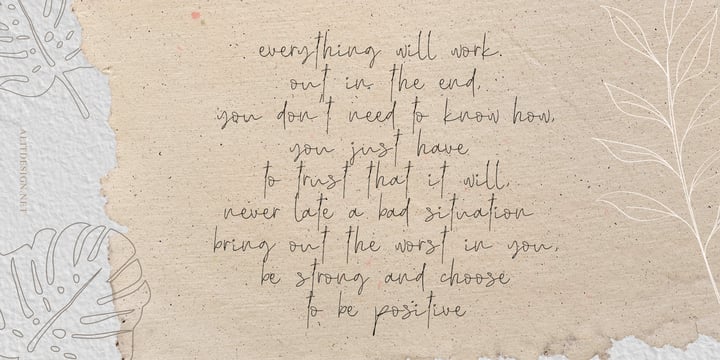 everything will work.
out in. the end.
you don't need to know how.
you just have
to trust that it will.
never late a bad situation
bring out the worst in you.
be strong and choose
to be positive
AUTTDESIGN.NET